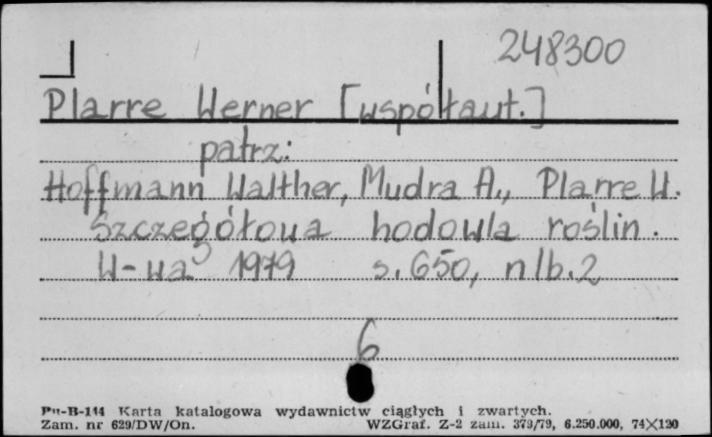 248300
Plarre Werner [współaut.]
patrz:
Hoffmann Walther, Mudra A., Plarre W.
Szczegółowa hodowla roślin.
W-wa 1979 s. 650, nlb. 2
6
Pu-B-144 Karta katalogowa wydawnictw ciągłych i zwartych.
Zam. nr 629/DW/On. WZGraf. Z-2 zam. 379/79, 6.250.000, 74×120